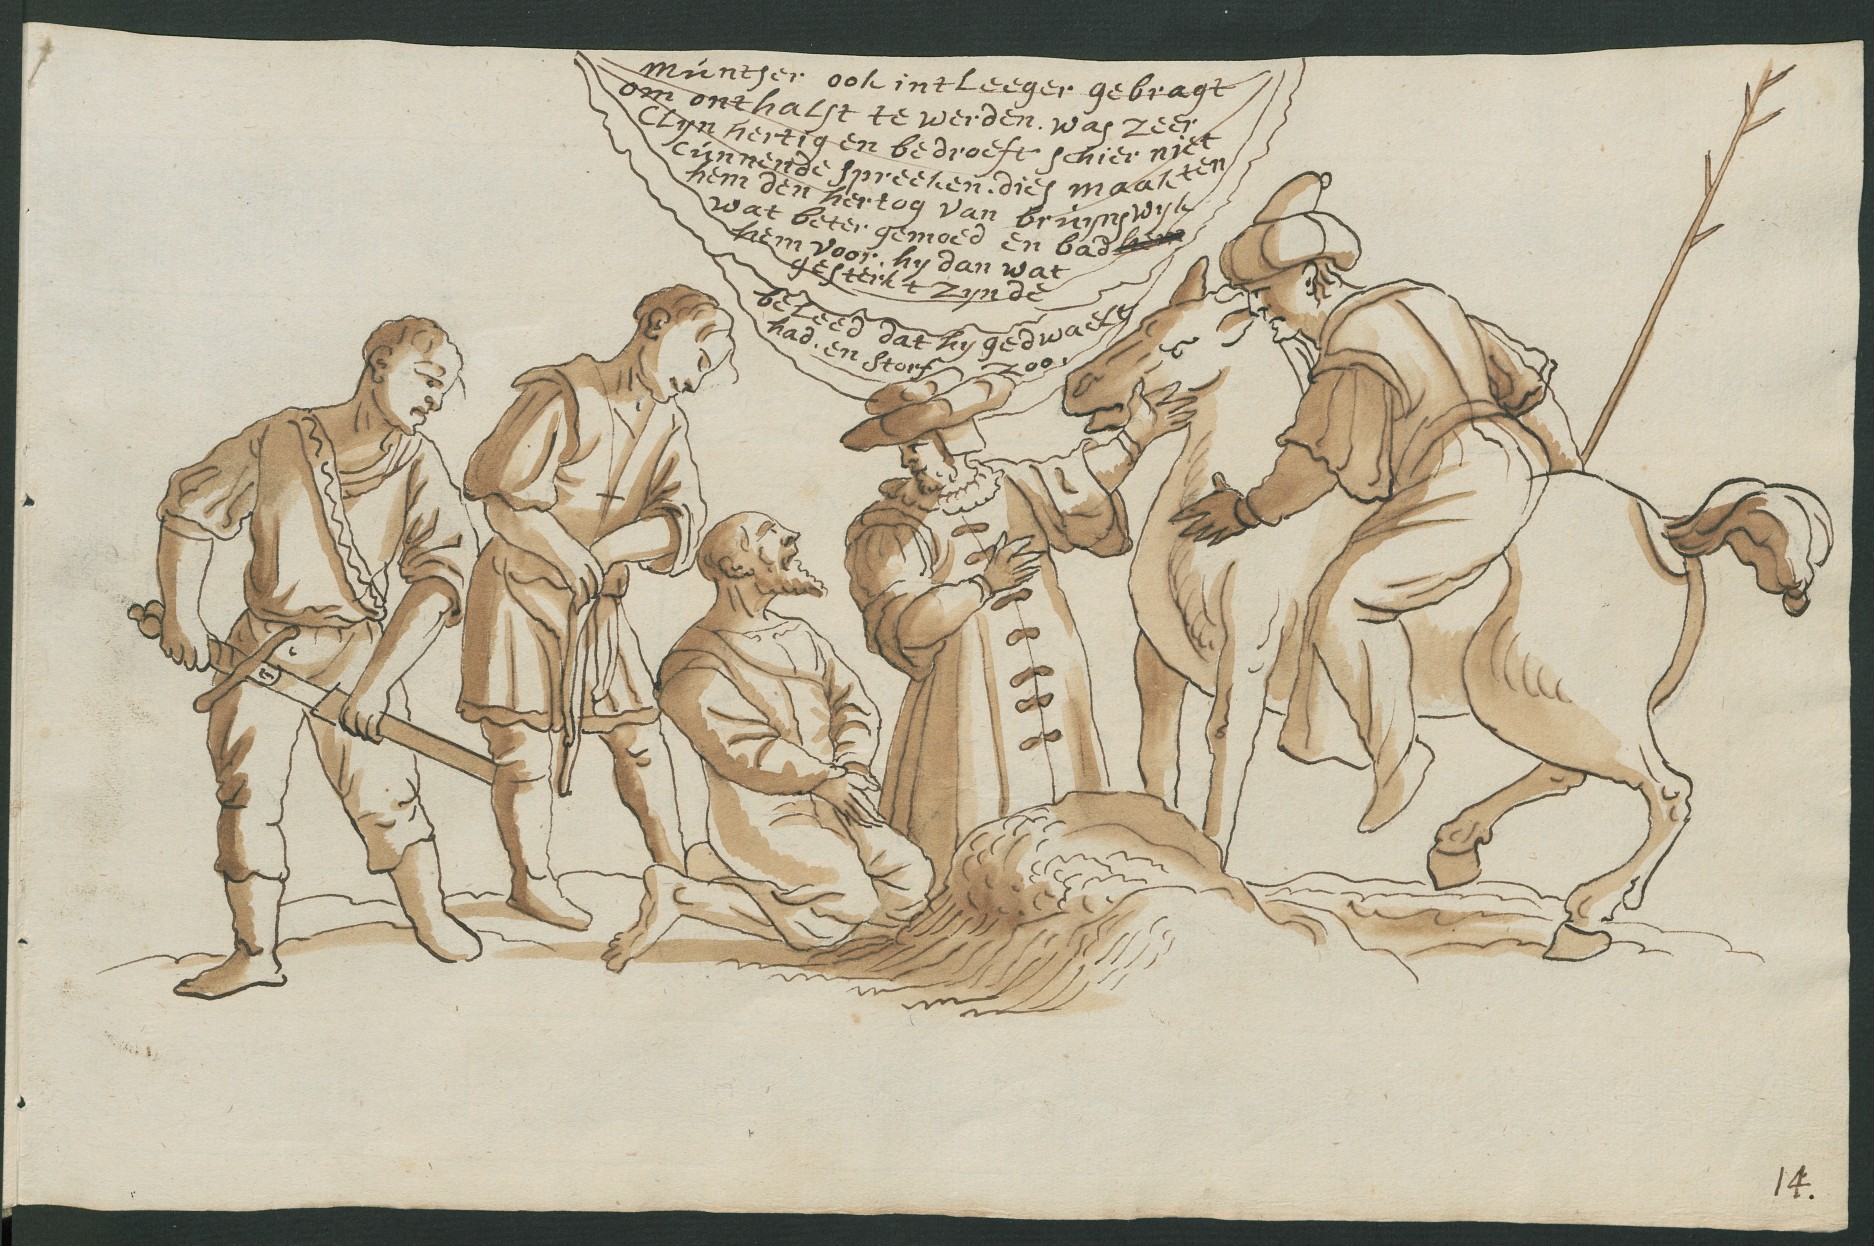 müntser ook int Leeger gebragt
om onthalst te werden. was zeer
Clijn hertig en bedroeft schier niet
cünnende spreeken. dies maakten
hem den hertog van brüijnswijk
wat beter gemoed en bad hem
hem voor. hij dan wat
gesterkt zijnde
beleed dat hij gedwaelt
had. en storf zoo.
14.